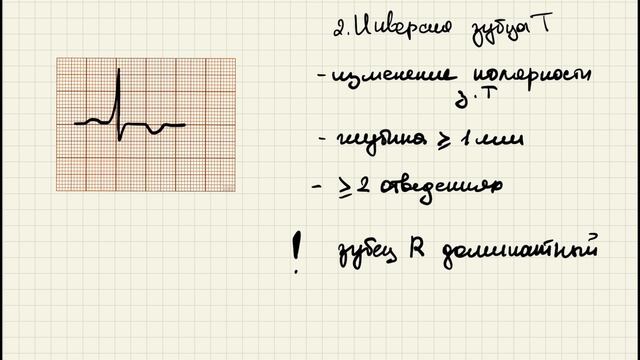 2. Инверсия зубца T
- изменение полярности
з. T
- глубина ≥ 1 мм
- ≥ 2 отведениях
! зубец R доминантный